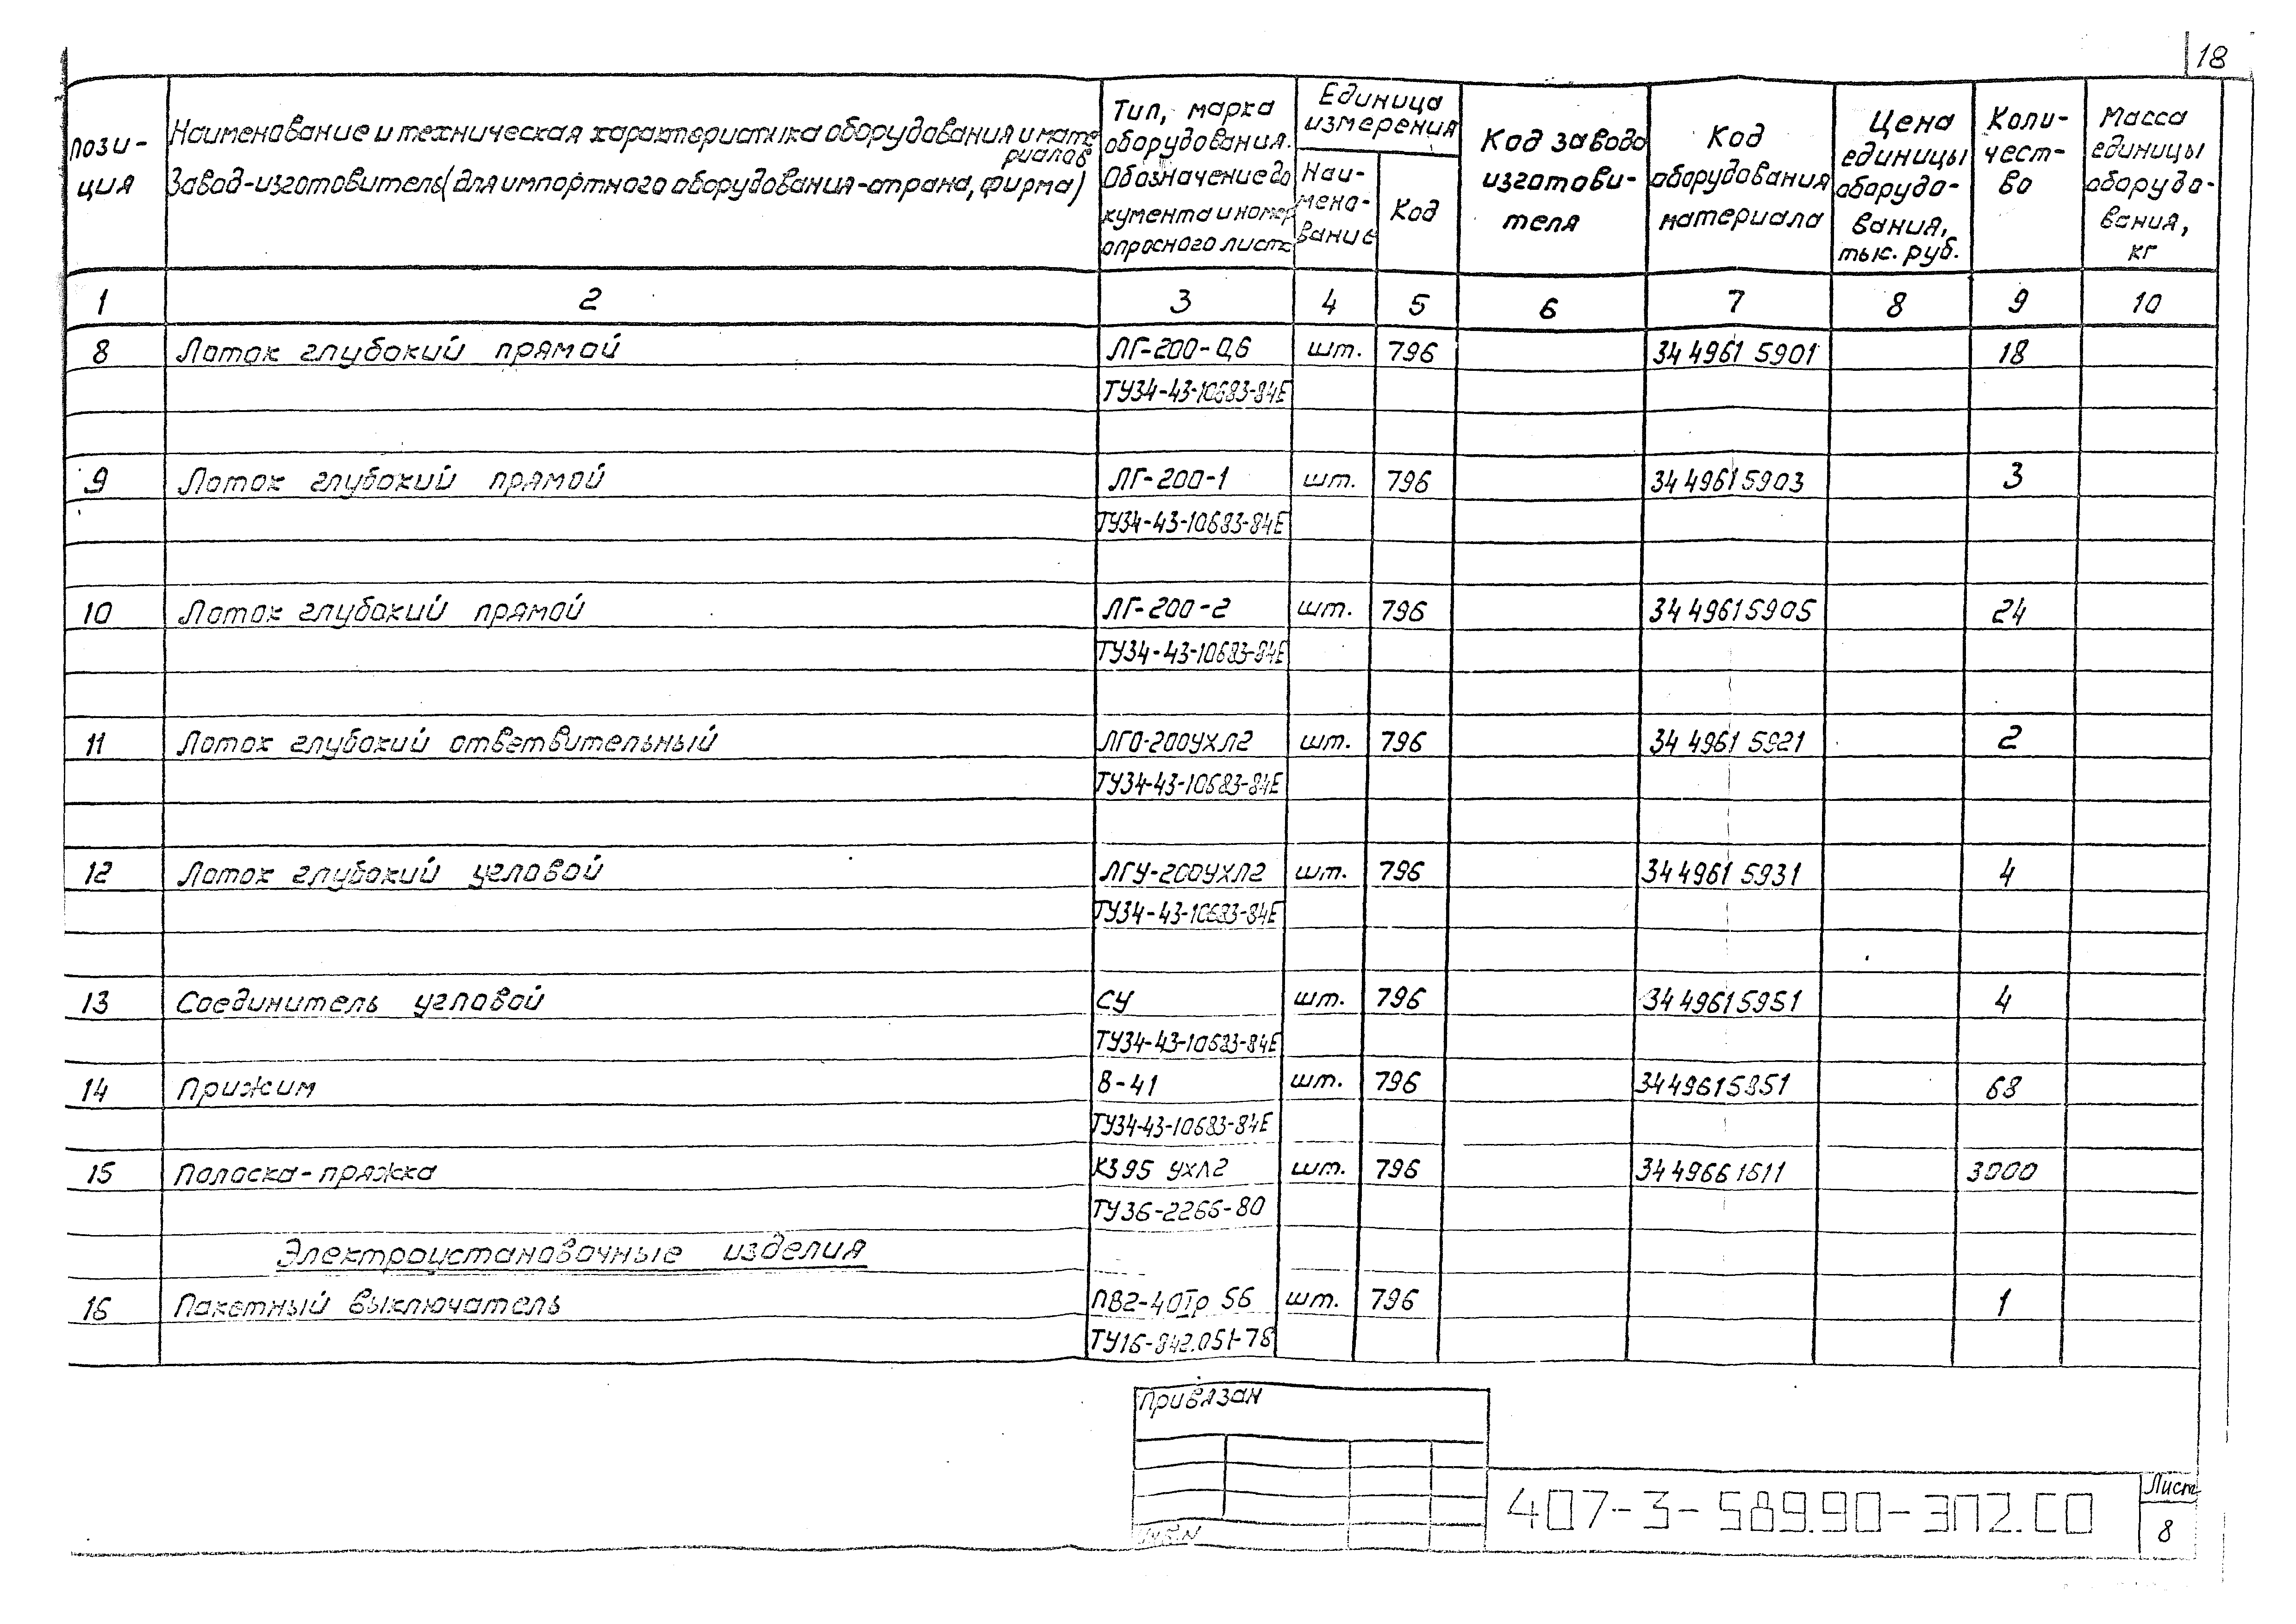 18
Пози-
ция
Наименование и техническая характеристика оборудования и мате
риалов
Завод-изготовитель (для импортного оборудования-страна, фирма)
Тип, марка
оборудования.
Обозначение до
кумента и номер
опросного листа
Единица
измерения
Наи-
мено-
вание
Код
Код завода
изготови-
теля
Код
оборудования
материала
Цена
единицы
оборудо-
вания,
тыс. руб.
Коли-
чест-
во
Масса
единицы
оборудо-
вания,
кг
1 2 3 4 5 6 7 8 9 10
8 Лоток глубокий прямой ЛГ-200-0,6 шт. 796 34 4961 5901 18
ТУ34-43-10683-84Е
9 Лоток глубокий прямой ЛГ-200-1 шт. 796 34 4961 5903 3
ТУ34-43-10683-84Е
10 Лоток глубокий прямой ЛГ-200-2 шт. 796 34 4961 5905 24
ТУ34-43-10683-84Е
11 Лоток глубокий ответвительный ЛГО-200УХЛ2 шт. 796 34 4961 5921 2
ТУ34-43-10683-84Е
12 Лоток глубокий угловой ЛГУ-200УХЛ2 шт. 796 34 4961 5931 4
ТУ34-43-10683-84Е
13 Соединитель угловой СУ шт. 796 34 4961 5951 4
ТУ34-43-10683-84Е
14 Прижим 8-41 шт. 796 34 4961 5851 68
ТУ34-43-10683-84Е
15 Полоска-пряжка К395 УХЛ2 шт. 796 34 4966 1611 3000
ТУ36-2266-80
Электроустановочные изделия
16 Пакетный выключатель ПВ2-40Iр 56 шт. 796 1
ТУ16-842.051-78
Привязан
Инв.N
407-3-589.90-ЭП2.СО
Лист
8